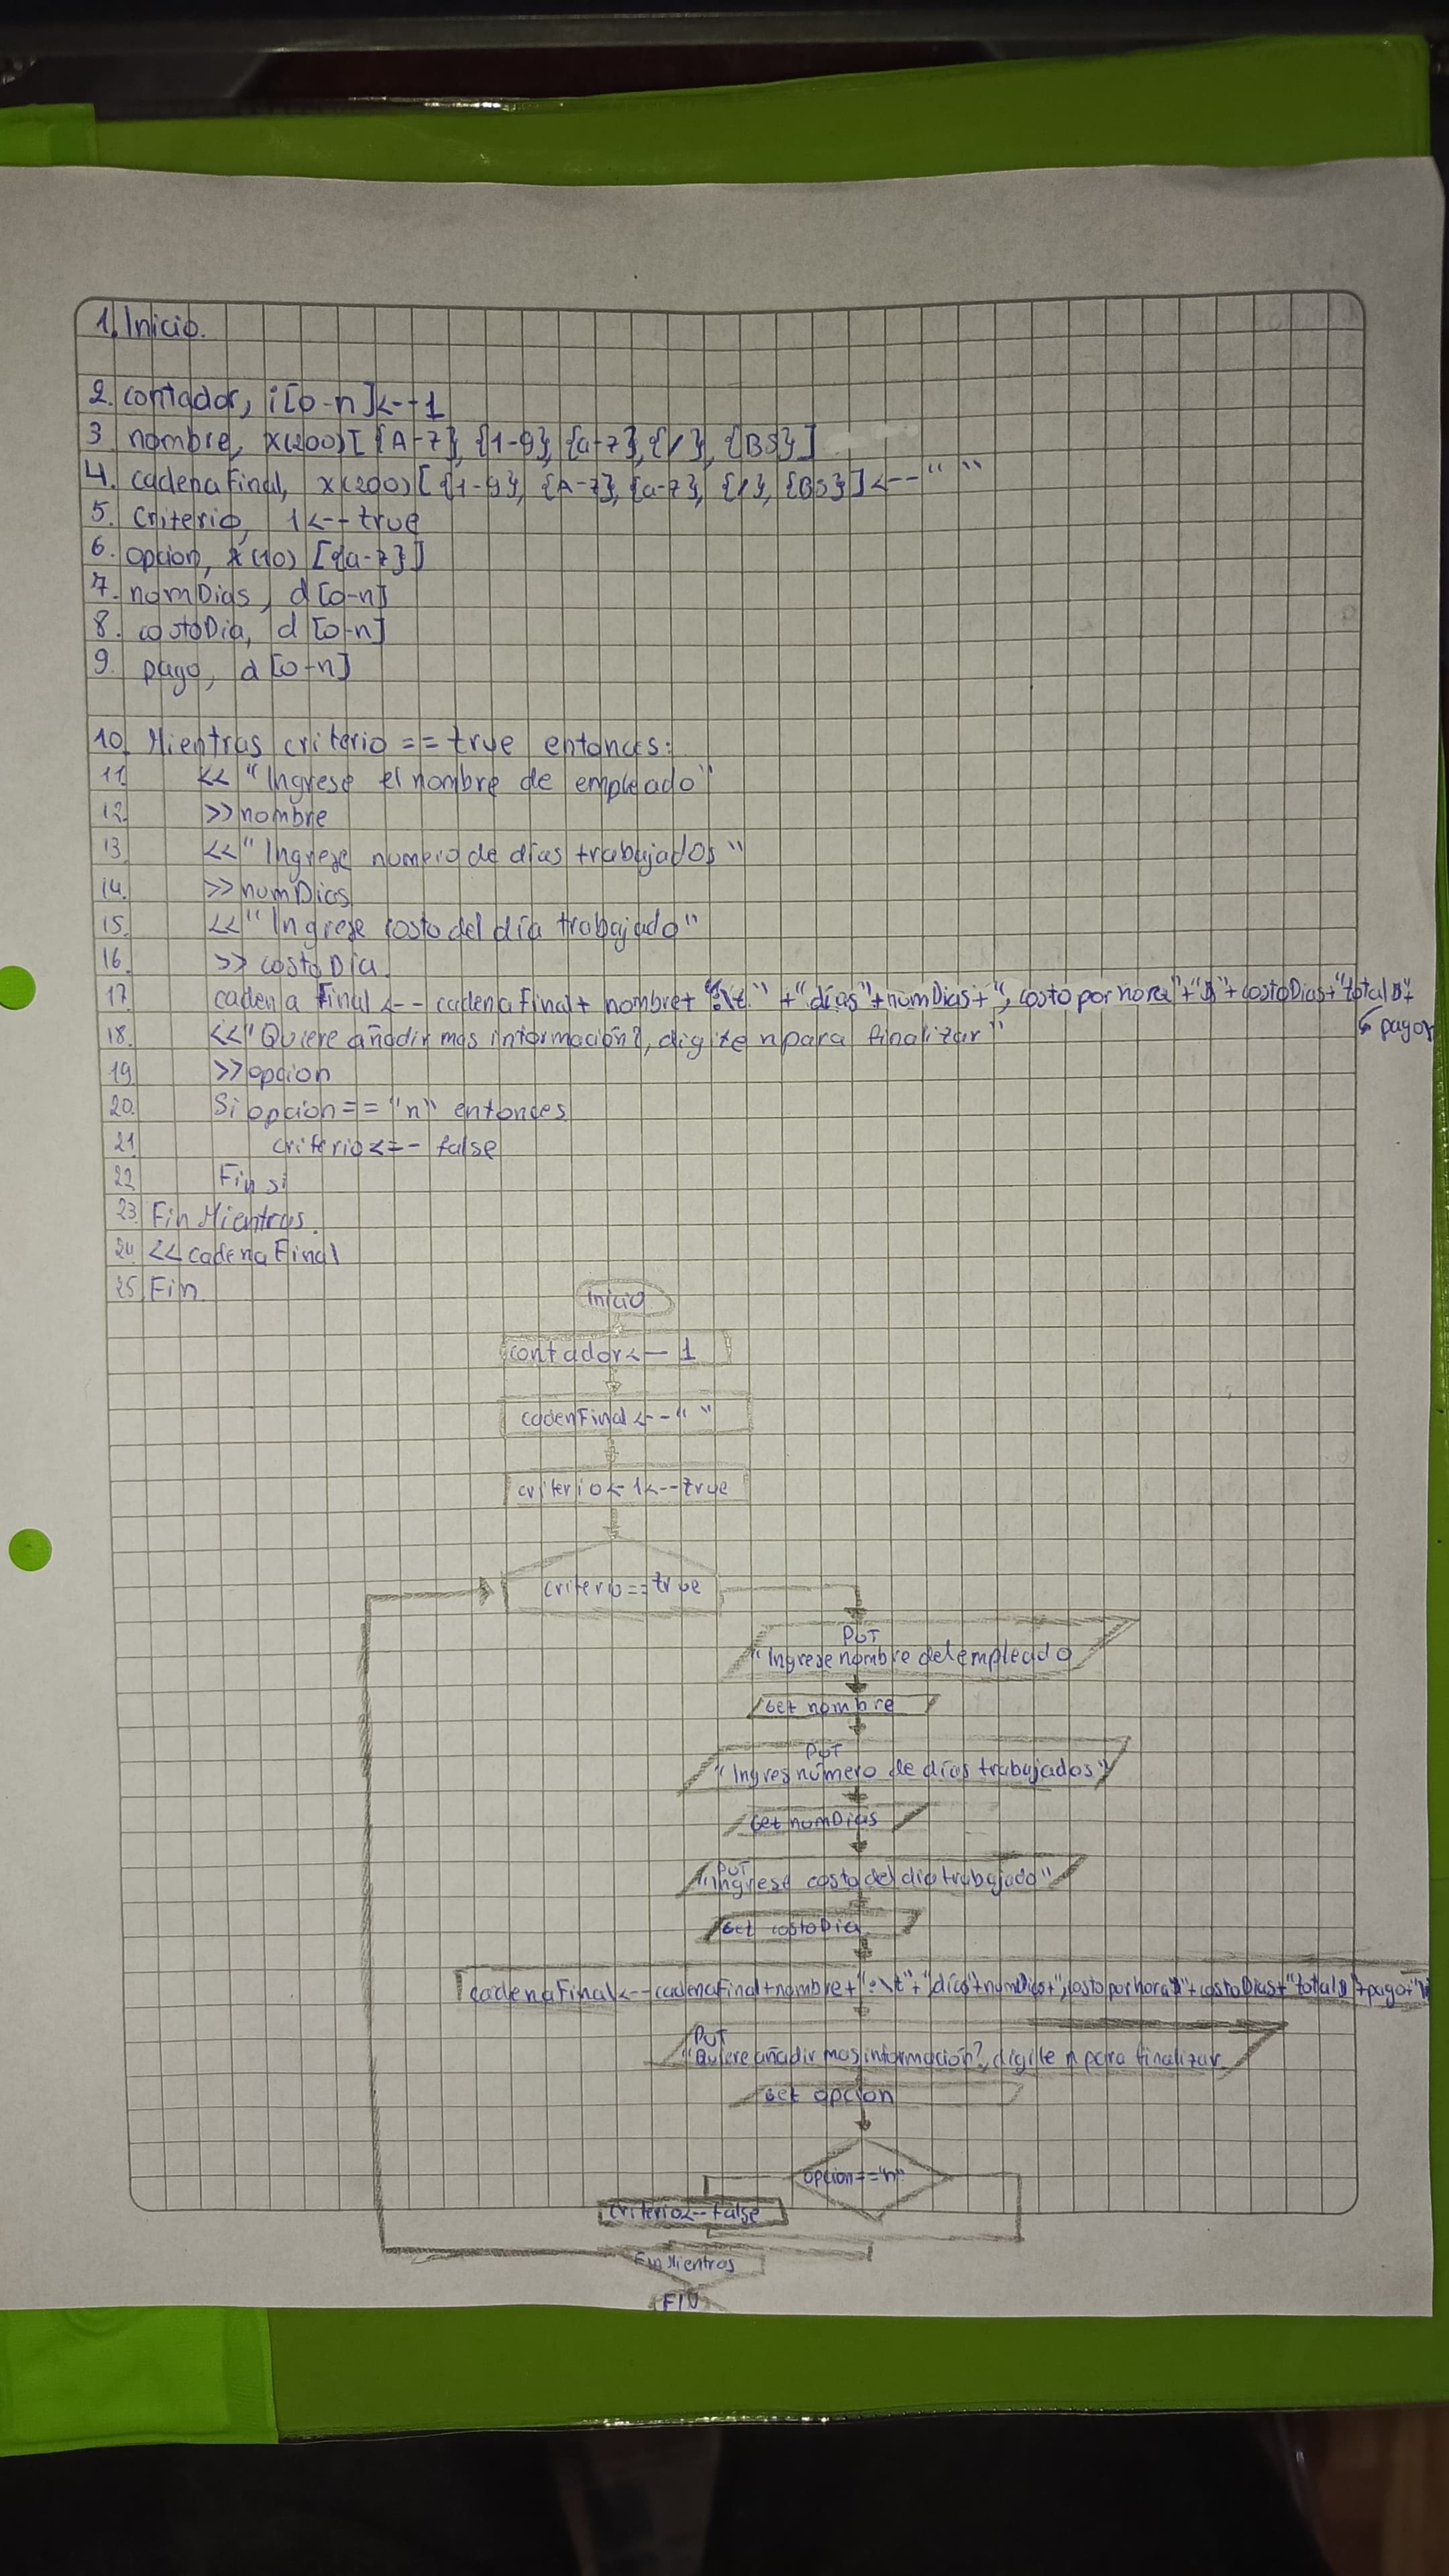 1. Inicio.
2. contador, i[0-n]<--1
3 nombre, x(200)[{A-z}, {1-9}, {a-z}, {/}, {BS}]
4. cadenaFinal, x(200)[{1-9}, {A-z}, {a-z}, {/}, {BS}]<--" "
5. Criterio, 1<--true
6. opcion, x(10) [{a-z}]
7. numDias, d[0-n]
8. costoDia, d[0-n]
9. pago, d[0-n]
10. Mientras criterio == true entonces:
11. << "Ingrese el nombre de empleado"
12. >>nombre
13 <<"Ingrese numero de días trabajados"
14. >>numDias
15. <<"Ingrese costo del día trabajado"
16. >> costoDia
17 cadena Final <-- cadenaFinal + nombre+ ":\t" + "días"+numDias+", costo por hora"+"$"+costoDias+"total $"+
pago+
18. <<"Quiere añadir mas información?, digite n para finalizar"
19. >>opcion
20. Si opcion == "n" entonces
21 criterio<-- false
22 Fin si
23. Fin Mientras.
24 <<cadenaFinal
25 Fin
inicio
contador<-- 1
cadenFinal<--" "
criterio<-1<--true
criterio==true
PUT
"Ingrese nombre del empleado
Get nombre
PUT
"Ingres número de días trabajados"
Get numDias
PUT
"Ingrese costo del dia trabajado"
Get costoDia
cadenaFinal<--cadenaFinal+nombre+":\t"+"días"+numDias+",costo por hora$"+costoDias+"total$"+pago+"\
PUT
"Quiere añadir mas información?, digite n para finalizar
Get opcion
opcion=="n"
criterio<--false
Fin Mientras
FIN